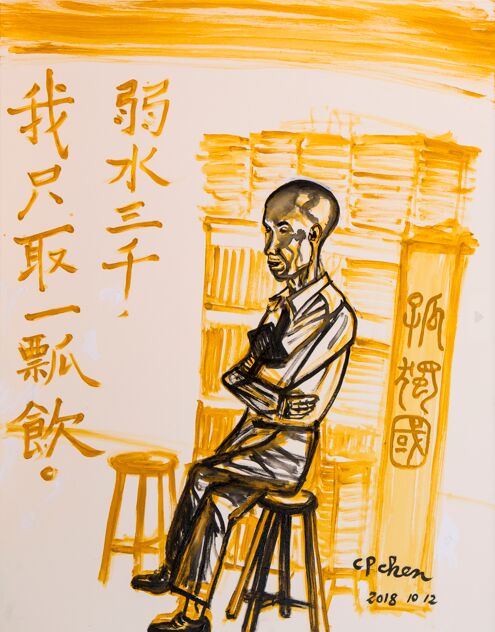 弱水三千，
我只取一瓢飲。
孤獨國
CP Chen
2018 10 12